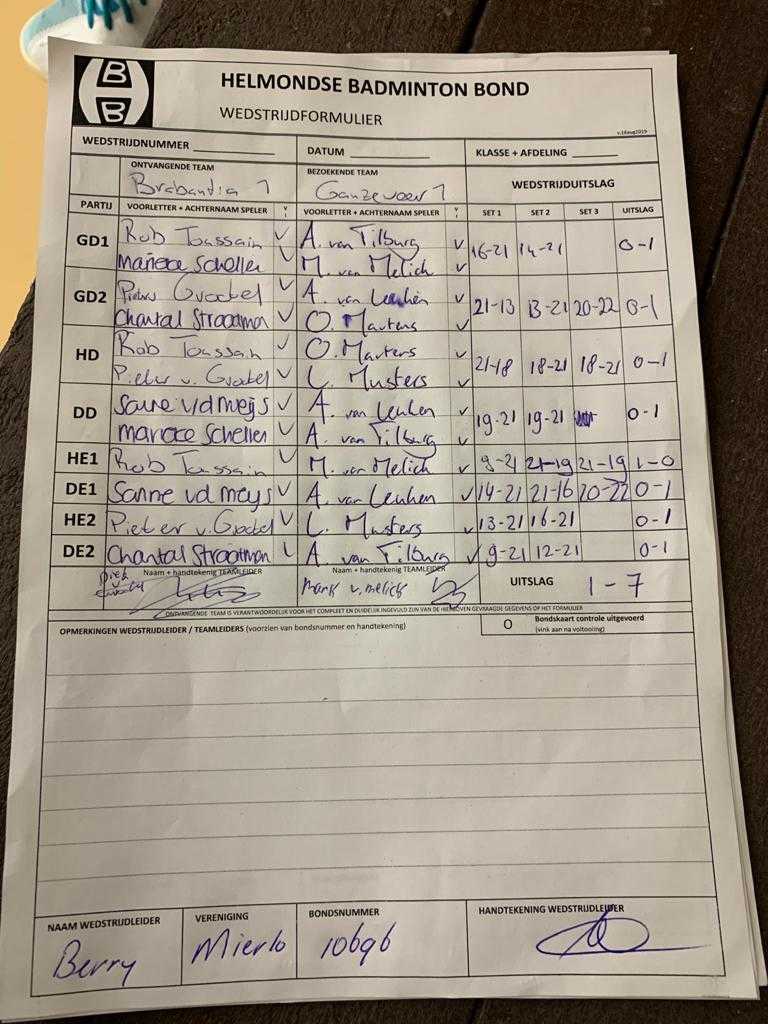 HELMONDSE BADMINTON BOND
WEDSTRIJDFORMULIER
v.16aug2019
WEDSTRIJDNUMMER DATUM KLASSE + AFDELING
ONTVANGENDE TEAM BEZOEKENDE TEAM WEDSTRIJDUITSLAG
Brabantia 1 Ganzeveer 1
PARTIJ VOORLETTER + ACHTERNAAM SPELER VOORLETTER + ACHTERNAAM SPELER SET 1 SET 2 SET 3 UITSLAG
GD1 Rob Toussain V A. van Tilburg V 16-21 14-21 0-1
Marieke Schellen V M. van Melich V
GD2 Pieter v Grootel V A. van Leuken 21-13 13-21 20-22 0-1
Chantal Straatman V O. Martens V
HD Rob Toussain V O. Martens V 21-18 18-21 18-21 0-1
Pieter v. Grootel V L. Musters V
DD Sanne vd meijs V A. van Leuken V 19-21 19-21 0-1
Marieke Schellen V A. van Tilburg V
HE1 Rob Toussain V M. van Melich V 9-21 21-19 21-19 1-0
DE1 Sanne vd meys V A. van Leuken V 14-21 21-16 20-22 0-1
HE2 Pieter v. Grootel V L. Musters V 13-21 16-21 0-1
DE2 Chantal Straatman V A. van Tilburg V 9-21 12-21 0-1
Naam + handtekenig TEAMLEIDER Naam + handtekenig TEAMLEIDER UITSLAG 1-7
Mark v. melich
ONTVANGENDE TEAM IS VERANTWOORDELIJK VOOR HET COMPLEET EN DUIDELIJK INGEVULD ZIJN VAN DE HIERBOVEN GEVRAAGDE GEGEVENS OP HET FORMULIER
OPMERKINGEN WEDSTRIJDLEIDER / TEAMLEIDERS (voorzien van bondsnummer en handtekening) O Bondskaart controle uitgevoerd
(vink aan na voltooiing)
NAAM WEDSTRIJDLEIDER VERENIGING BONDSNUMMER HANDTEKENING WEDSTRIJDLEIDER
Berry Mierlo 10696